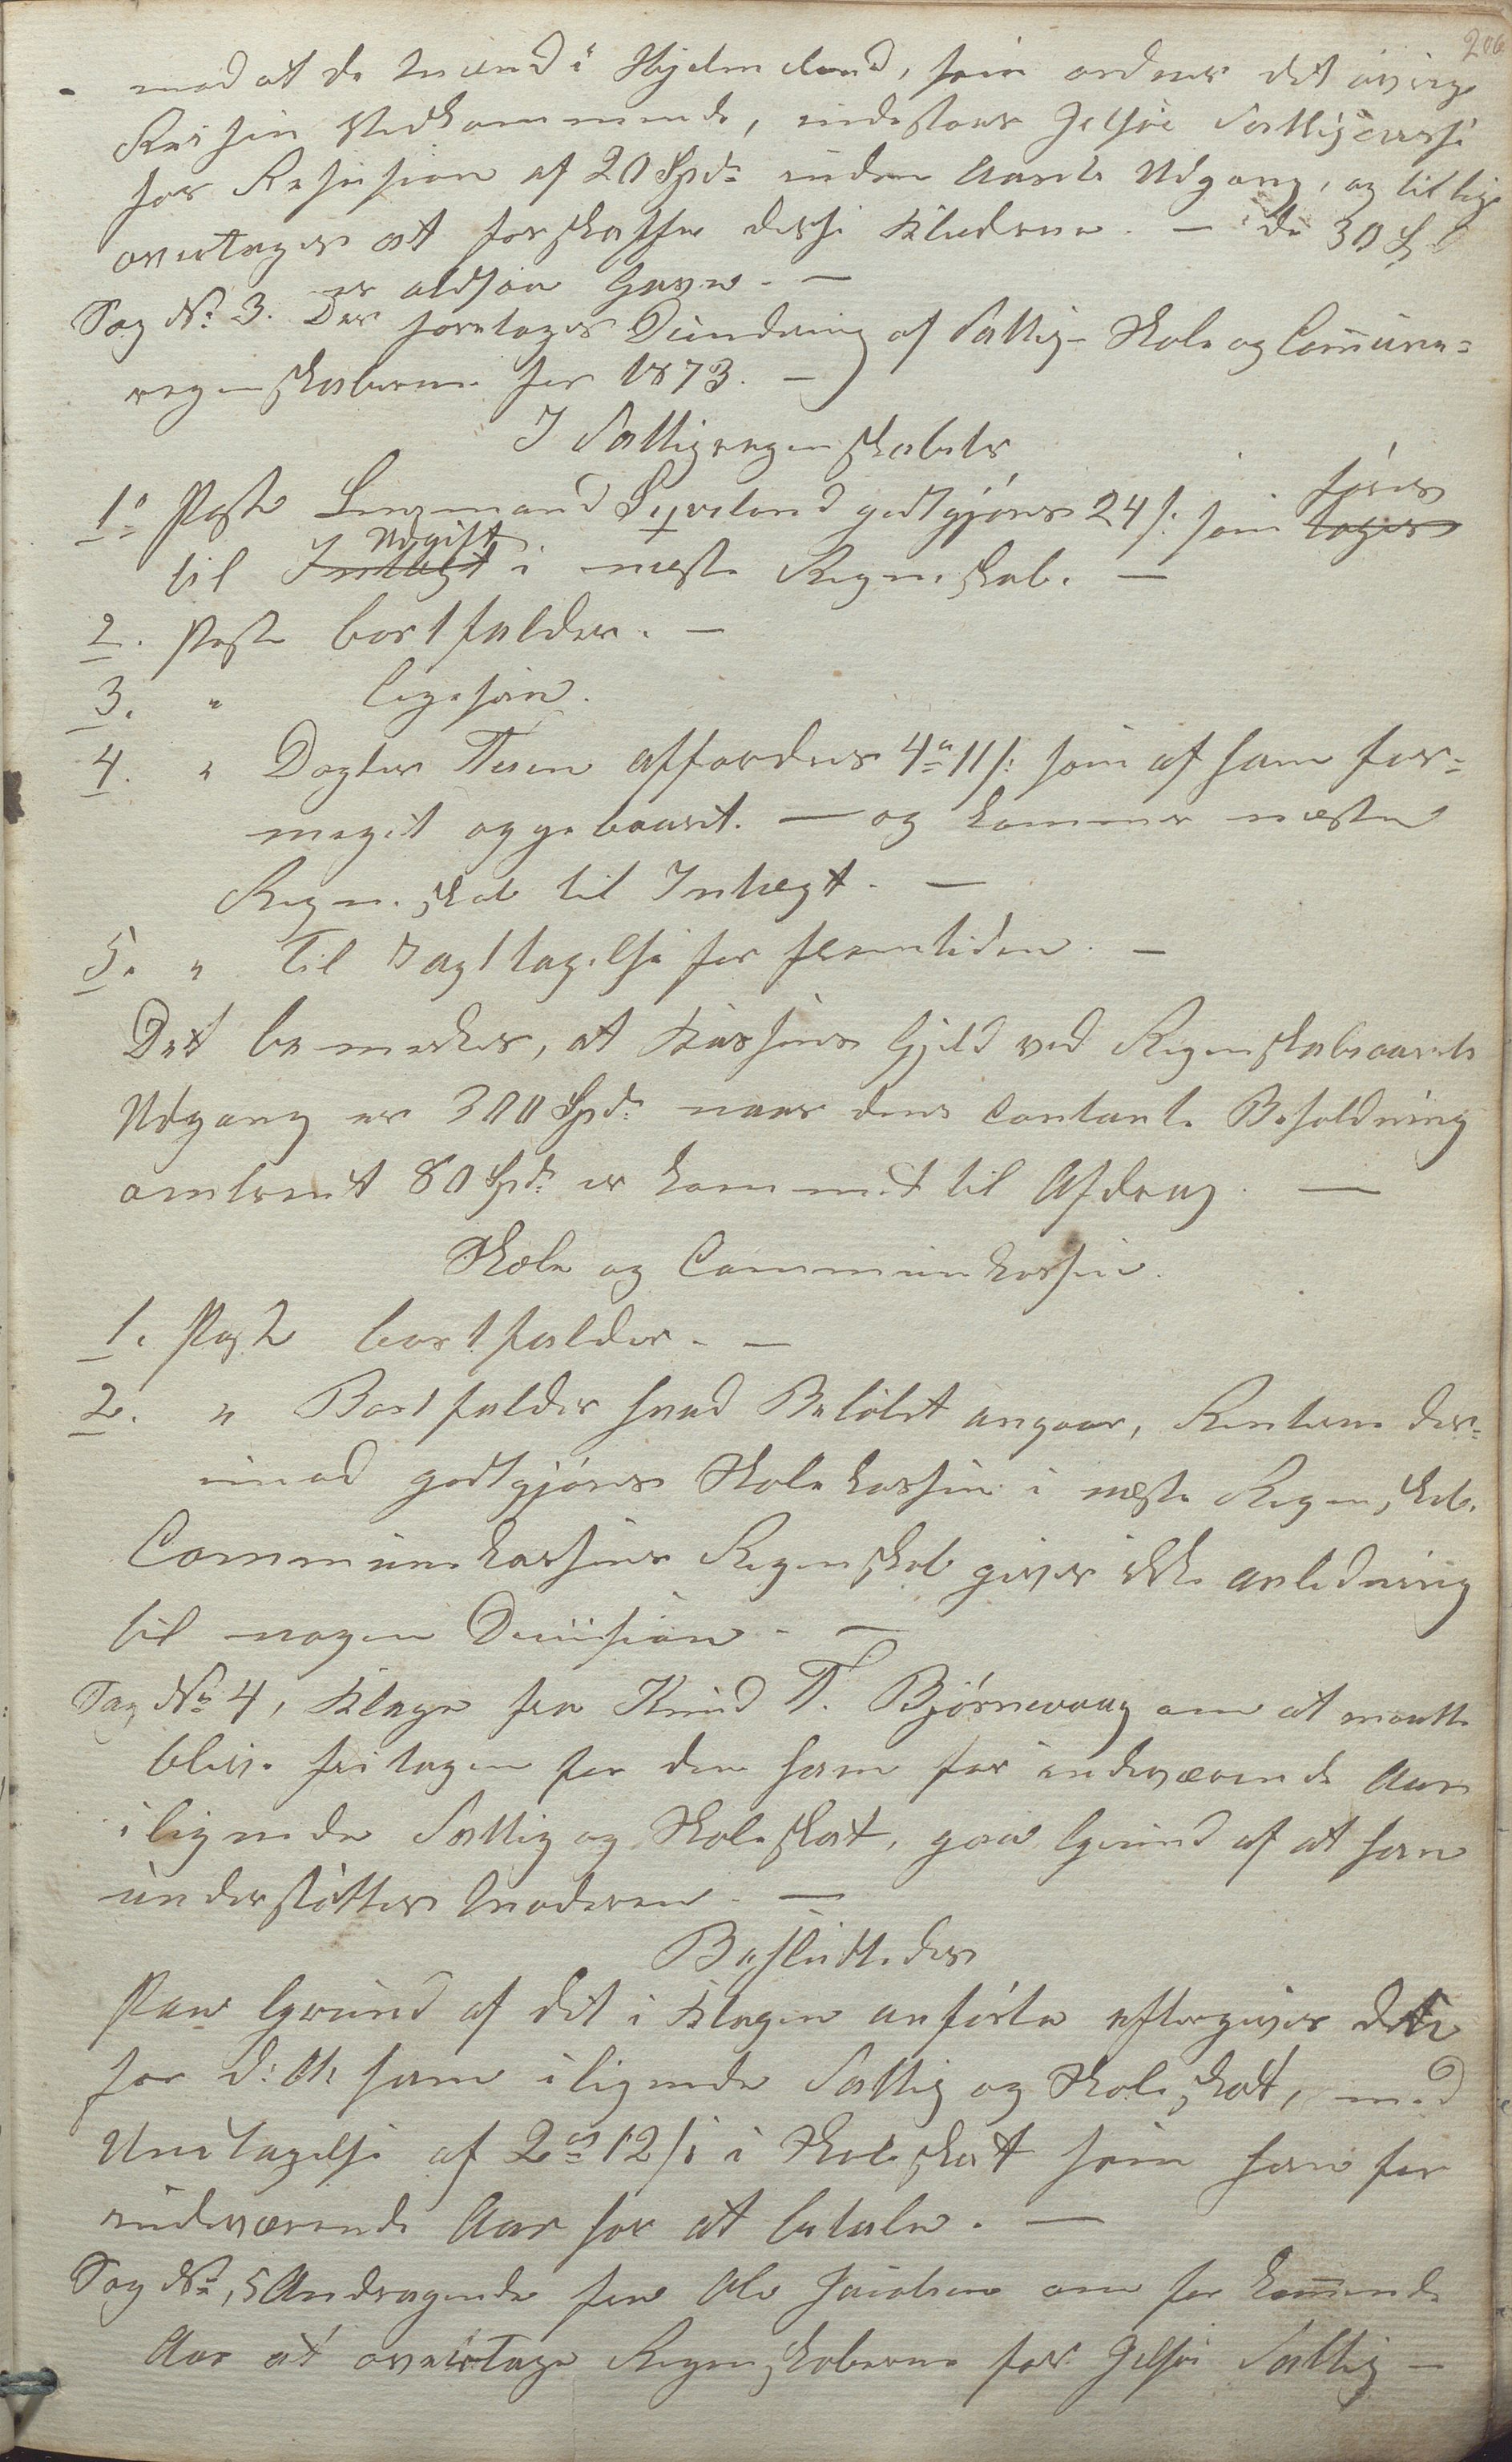 206
mod at de Mænd i Hjelmeland, som ordner det øvrige
Reisen Vedkommende, indestaar Jelsøe Fattigcasse
for Refusion af 20 Spd: inden Aarets Udgang, og tillige
overtager at forskaffe disse Klæderne. — de 30 Spd
er altsaa Gave. —
Sag No 3. Der foretages Decidering af Fattig- Skole og Commune=
regnskaberne for 1873. —
I Fattigregnskabets
1ste Post Lensmand godtgjøres 24 s: som føres
tages
til Udgift i næste Regnskab. —
Indtægt
2. Post bortfalder. —
3. " ligesaa.
4. " Dagter affordres 4 # 11 s: som af ham for=
meget oppebaaret. — og kommer næste
Regnskab til Indtægt. —
5. " Til Iagttagelse for fremtiden. —
Det bemerkes, at Kassens Gjeld ved Regnskabsaarets
Udgang er 300 Spd: naar dens contante Beholdning
omtrent 80 Spd: er kommet til Afdrag. —
Skole og Communekassen.
1. Post bortfalder. —
2. " Bortfalder hvad Beløbet angaar, Renterne der=
imod godtgjøres Skolekassen i næste Regnskab.
Communekassens Regnskab giver ikke anledning
til nogen Decision. —
Sag No 4, Klage fra Knud T. Bjørnevaag om at maatte
blive fritagen for den ham for indeværende Aar
ilignede Fattig og Skoleskat, paa Grund af at han
understøtter Moderen. —
Besluttedes
Paa Grund af det i Klagen anførte eftergives dette
for d: A: ham ilignede Fattig og Skoleskat, med
Undtagelse af 2 # 12 s: i Skoleskat som han for
indeværende Aar har at betale. —
Sag No 5 Andragende fra Ole Jacobsen om for kommende
Aar at overtage Regnskaberne for Jelsøe Fattig —